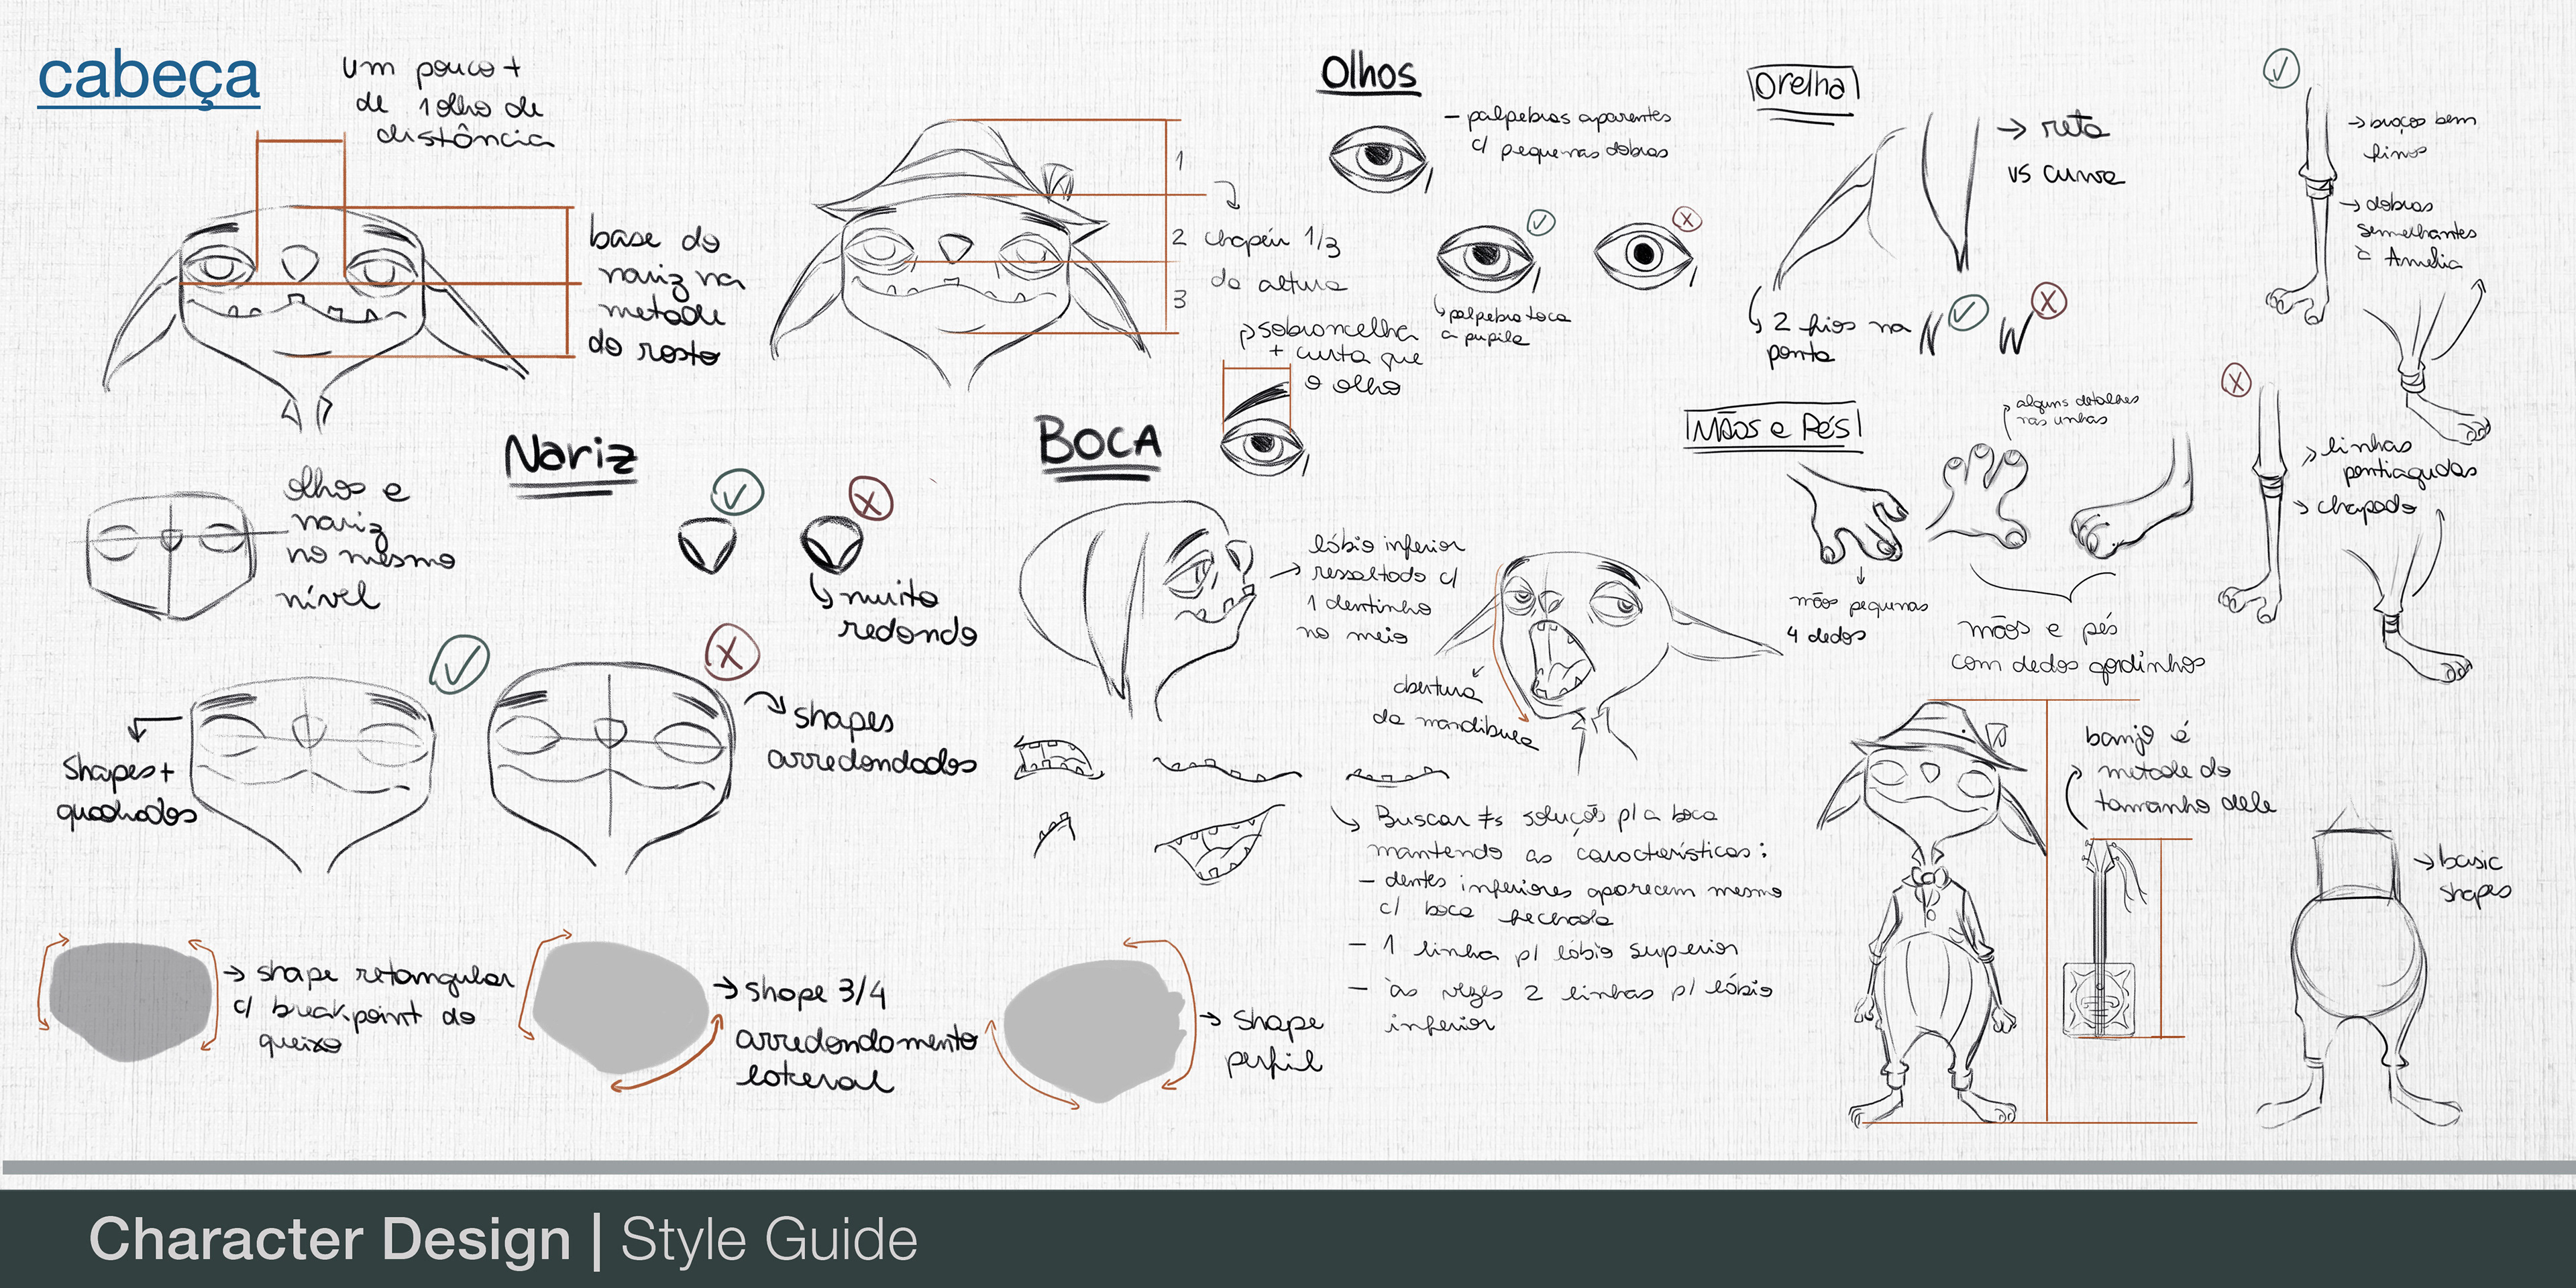 cabeça
um pouco +
de 1 olho de
distância
base do
nariz na
metade
do rosto
1
2
3
chapéu 1/3
da altura
Olhos
- palpebras aparentes
c/ pequenas dobras
palpebra toca
a pupila
sobrancelha
+ curta que
o olho
Orelha
reta
vs curva
2 fios na
ponta
braços bem
finos
dobras
semelhantes
à Amelia
linhas
pontiagudas
chapado
Mãos e Pés
alguns detalhes
nas unhas
mãos pequenas
4 dedos
mãos e pés
com dedos gordinhos
olhos e
nariz
no mesmo
nível
Nariz
muito
redondo
Shapes +
quadrados
shapes
arredondados
BOCA
lábio inferior
ressaltado c/
1 dentinho
no meio
abertura
da mandibula
Buscar ≠s soluções p/ a boca
mantendo as características:
- dentes inferiores aparecem mesmo
c/ boca fechada
- 1 linha p/ lábio superior
- às vezes 2 linhas p/ lábio
inferior
banjo é
metade do
tamanho dele
basic
shapes
shape retangular
c/ breakpoint do
queixo
shape 3/4
arredondamento
lateral
shape
perfil
Character Design | Style Guide